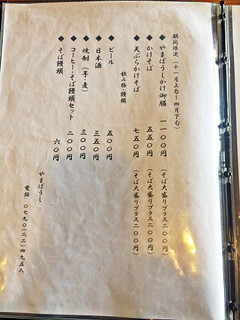 期間限定(十一月上旬〜四月下旬)
◆やまぼうしかけ御膳 一一〇〇円(そば大盛りプラス二〇〇円)
◆かけそば 五五〇円(そば大盛りプラス二〇〇円)
◆天ぷらかけそば 七五〇円(そば大盛りプラス二〇〇円)
飲み物・饅頭
◆ビール 五〇〇円
◆日本酒 三五〇円
◆焼酎(芋・麦) 三〇〇円
◆コーヒー・そば饅頭セット 二〇〇円
◆そば饅頭 六〇円
やまぼうし
電話 〇七九〇(二二)四九五八